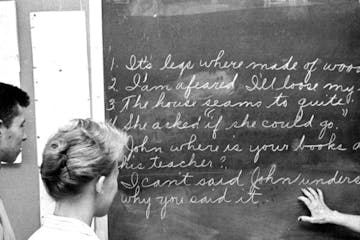 1. It's legs where made of wood
2. I'am afeared I'll loose my
3. The house seams to quite.
4. She acked if she could go."
John where is your books a
his teacher?
I can't said John unders
why you said it.